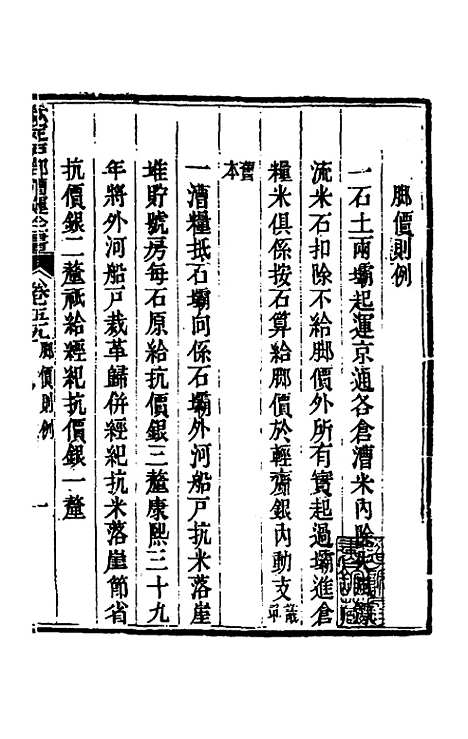 脚價則例
一石土兩壩起運京通各倉漕米內除
流米石扣除不給脚價外所有實起過壩進倉
糧米俱係按石算給脚價於輕齎銀內動支 議單
舊本
一漕糧抵石壩向係石壩外河船戶抗米落崖
堆貯號房每石原給抗價銀三釐康熙三十九
年將外河船戶裁革歸併經紀抗米落崖節省
抗價銀二釐祇給經紀抗價銀一釐
欽定戶部漕運全書 卷五九 脚價則例 一